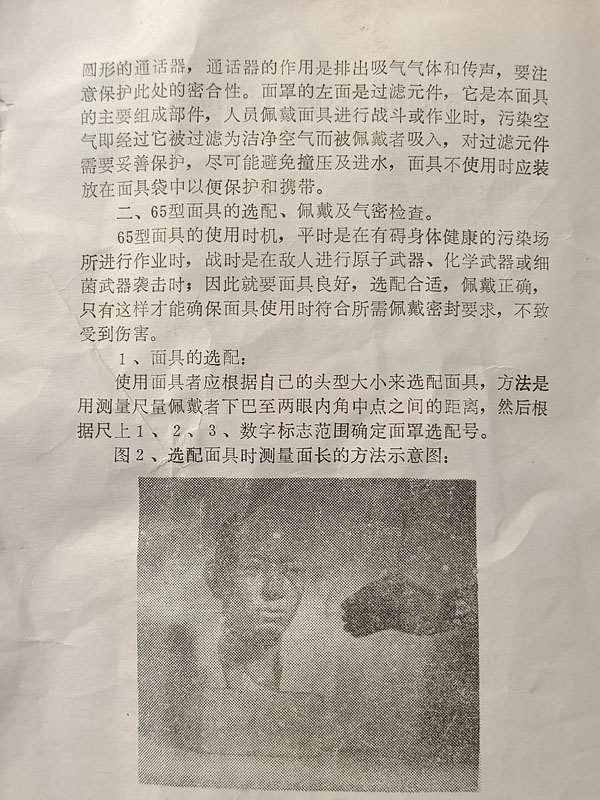 圆形的通话器，通话器的作用是排出吸气气体和传声，要注
意保护此处的密合性。面罩的左面是过滤元件，它是本面具
的主要组成部件，人员佩戴面具进行战斗或作业时，污染空
气即经过它被过滤为洁净空气而被佩戴者吸入，对过滤元件
需要妥善保护，尽可能避免撞压及进水，面具不使用时应装
放在面具袋中以便保护和携带。
二、65型面具的选配、佩戴及气密检查。
65型面具的使用时机，平时是在有碍身体健康的污染场
所进行作业时，战时是在敌人进行原子武器、化学武器或细
菌武器袭击时；因此就要面具良好，选配合适，佩戴正确，
只有这样才能确保面具使用时符合所需佩戴密封要求，不致
受到伤害。
1、面具的选配：
使用面具者应根据自己的头型大小来选配面具，方法是
用测量尺量佩戴者下巴至两眼内角中点之间的距离，然后根
据尺上1、2、3、数字标志范围确定面罩选配号。
图2、选配面具时测量面长的方法示意图：